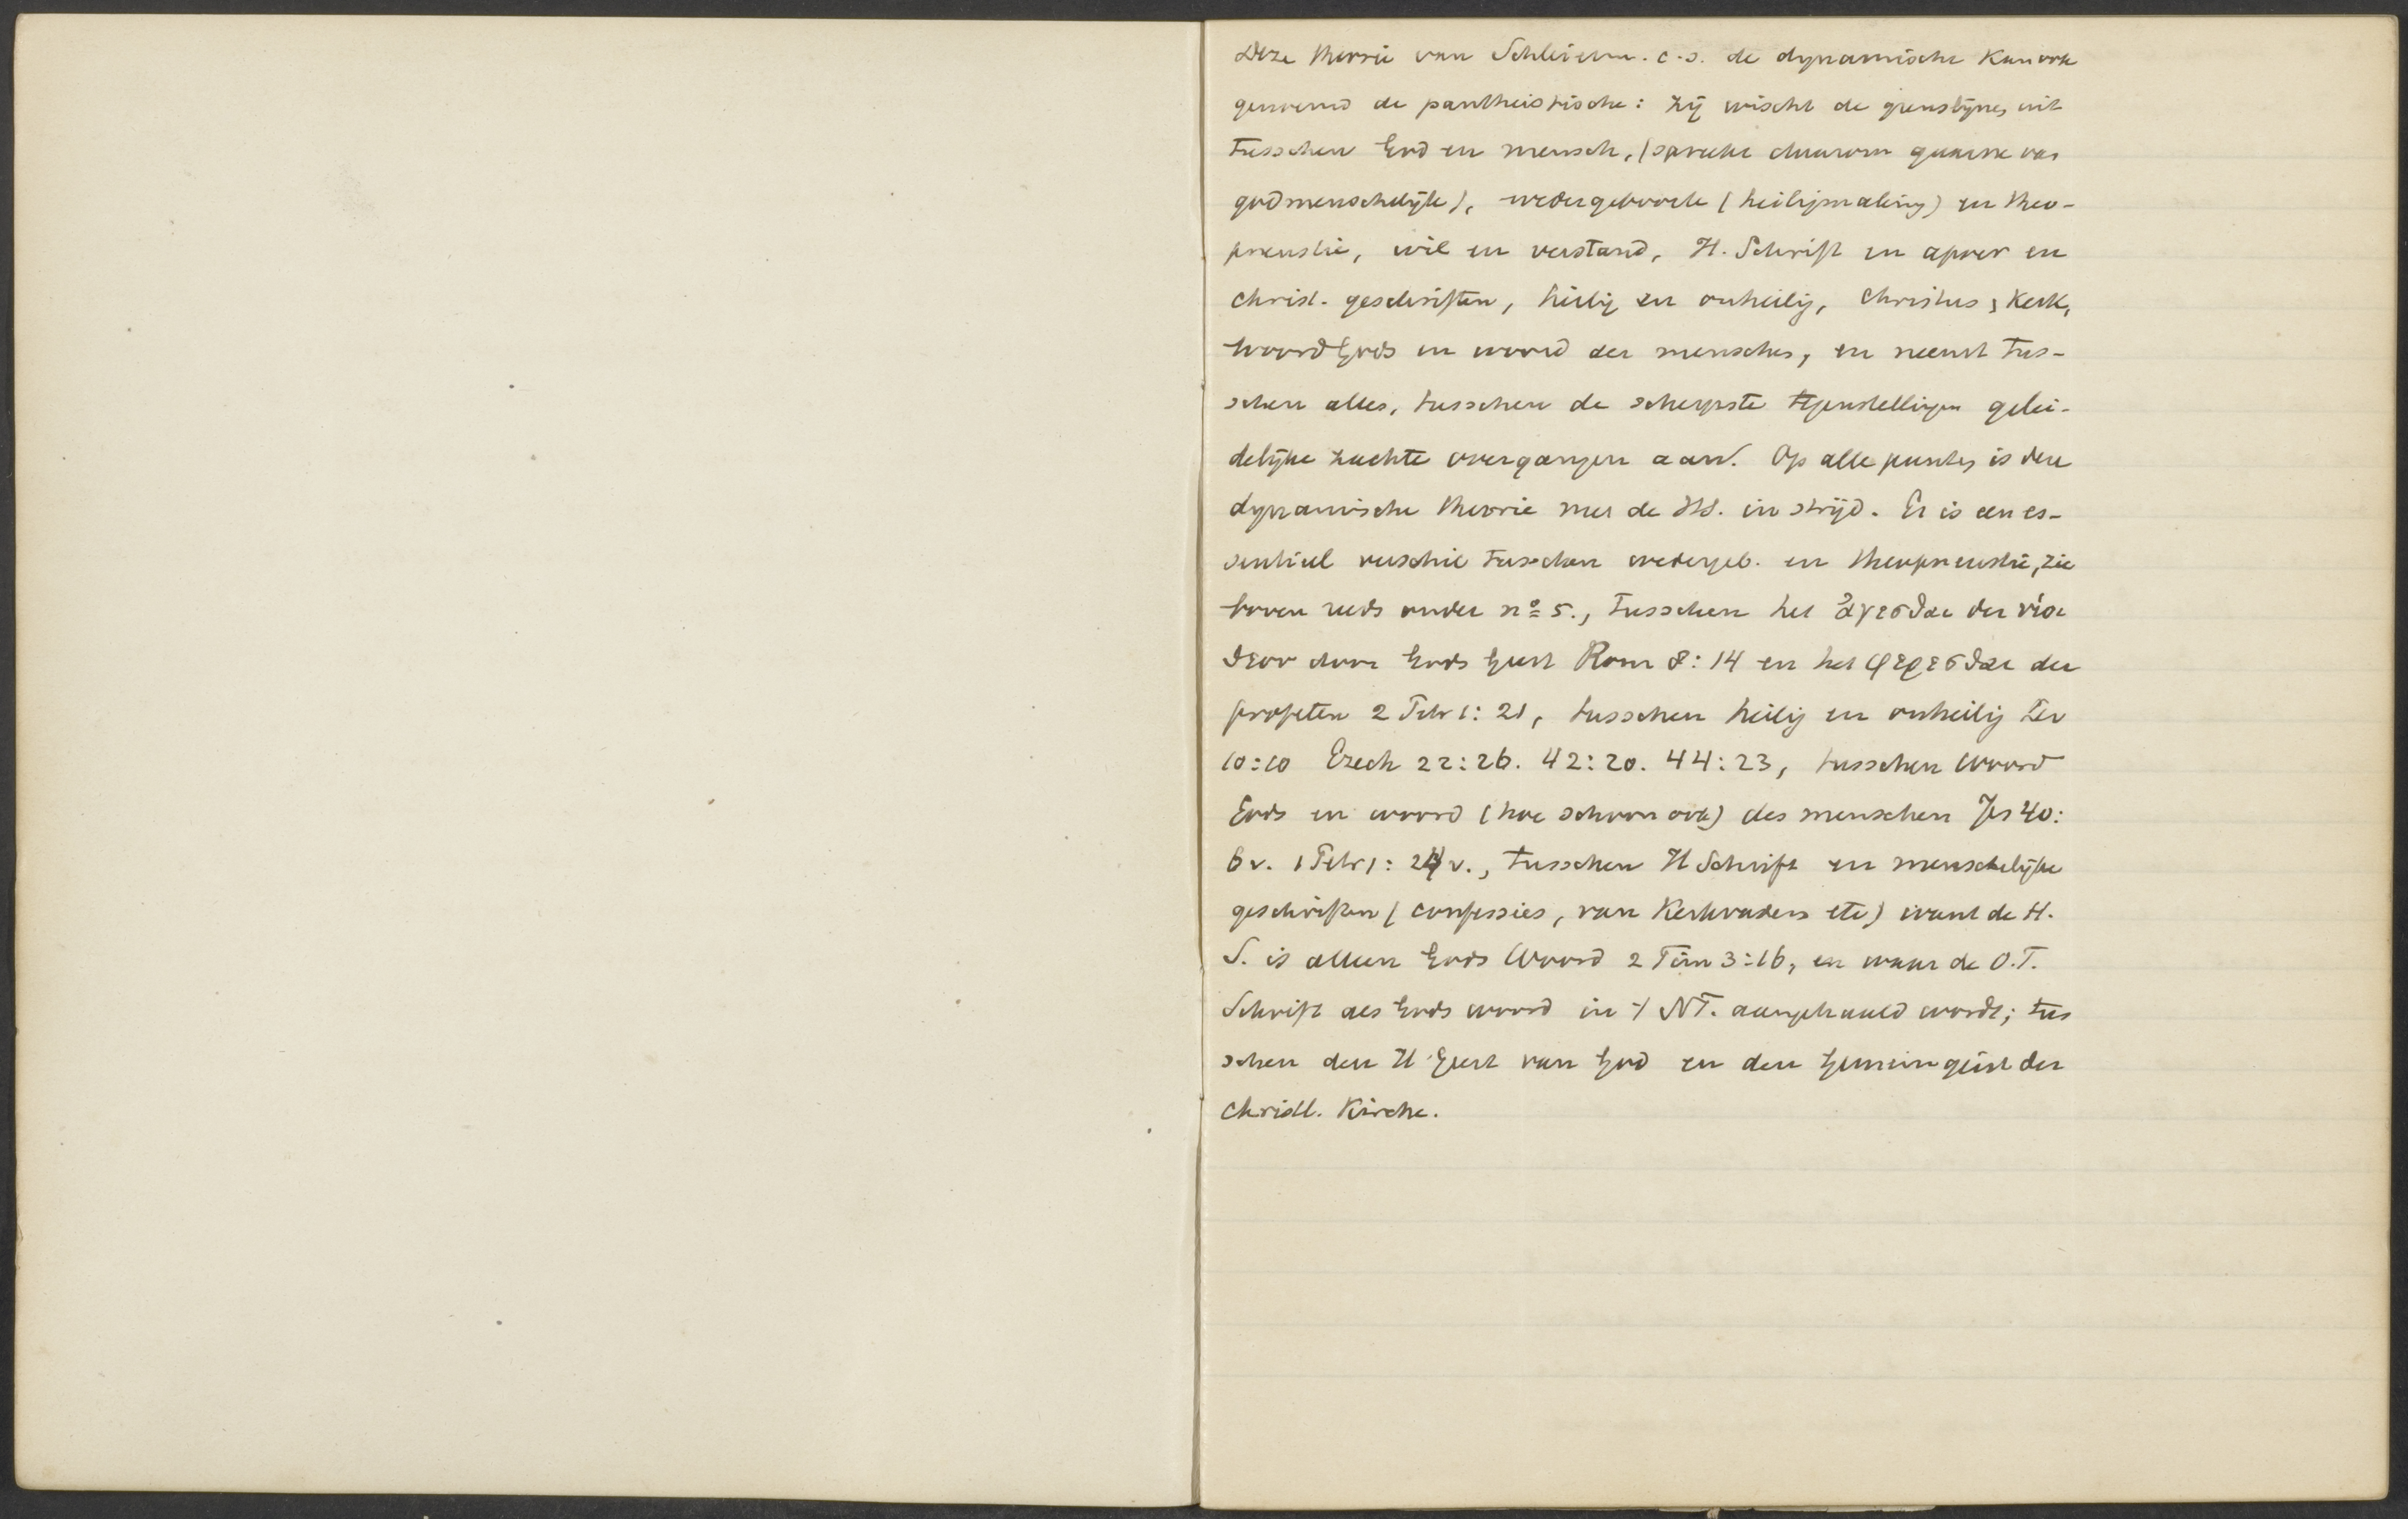 Deze theorie van Schleierm. c.s. de dynamische kan ook
genoemd de pantheistische: zij wischt de grenslijnen uit
tusschen God en mensch, (spreekt daarom gaarne van
godmenschelijk), wedergeboorte (heiligmaking) en theo-
pneustie, wil en verstand, H. Schrift en apocr en
christ. geschriften, heilig en onheilig, Christus, Kerk,
Woord Gods en woord der menschen, en neemt tus-
schen alles, tusschen de scherpste tegenstellingen gelei-
delijke zachte overgangen aan. Op alle punten is deze
dynamische theorie met de HS. in strijd. Er is een es-
sentieel verschil tusschen wedergeb. en theopneustie, zie
boven reeds onder nº 5., tusschen het ἀγεσθαι der υἱοι
θεου door Gods Geest Rom 8:14 en het φερεσθαι der
profeten 2 Petr 1:21, tusschen heilig en onheilig Lev
10:10 Ezech 22:26. 42:20. 44:23, tusschen Woord
Gods en woord (hoe schoon ook) des menschen Jes 40:
6v. 1 Petr 1: 24 v., tusschen H Schrift en menschelijke
geschriften (confessies, van Kerkvaders etc) want de H.
S. is alleen Gods Woord 2 Tim 3:16, en waar de O.T.
Schrift als Gods woord in 't NT. aangehaald wordt; tus
schen den H Geest van God en den Gemeingeist der
christl. Kirche.